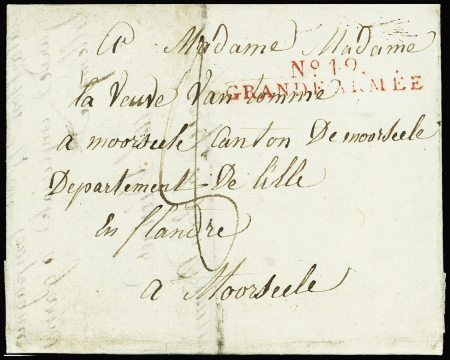 A Madame Madame
No. 19.
GRANDE ARMÉE
la veuve Vanromme
a moorseele Canton De moorseele
Departement De lille
En flandre
a Moorseele